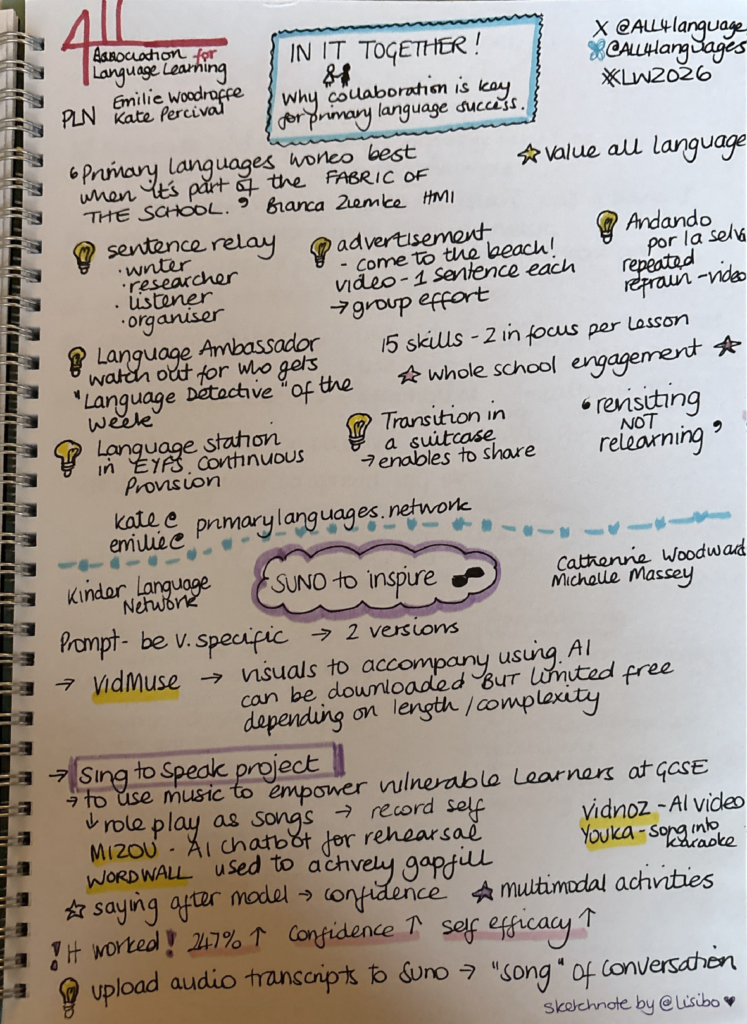 ALL
Association for
Language Learning
PLN Emilie Woodroffe
Kate Percival
IN IT TOGETHER!
Why collaboration is key
for primary language success.
X @ALL4language
@ALL4languages
#LW2026
"Primary languages works best
when it's part of the FABRIC OF
THE SCHOOL." Bianca Ziemke HMI
value all language
sentence relay
· writer
· researcher
· listener
· organiser
advertisement
- come to the beach!
video - 1 sentence each
→ group effort
Andando
por la selva
repeated
refrain - video
Language Ambassador
watch out for who gets
"Language Detective" of the
week
15 skills - 2 in focus per lesson
whole school engagement
Language station
in EYFS Continuous
Provision
Transition in
a suitcase
→ enables to share
"revisiting
NOT
relearning"
kate@
emilie@ primarylanguages.network
Kinder Language
Network
SUNO to inspire
Catherine Woodward
Michelle Massey
Prompt - be v. specific → 2 versions
→ VidMuse → visuals to accompany using AI
can be downloaded BUT limited free
depending on length / complexity
→ Sing to Speak project
→ to use music to empower vulnerable learners at GCSE
↓ role play as songs → record self
MIZOU - AI chatbot for rehearsal
WORDWALL used to actively gapfill
Vidnoz - AI video
Youka - song into
karaoke
☆ saying after model → confidence ★ multimodal activities
! It worked! 247% ↑ confidence ↑ self efficacy ↑
upload audio transcripts to Suno → "song" of conversation
sketchnote by @lisibo ♥